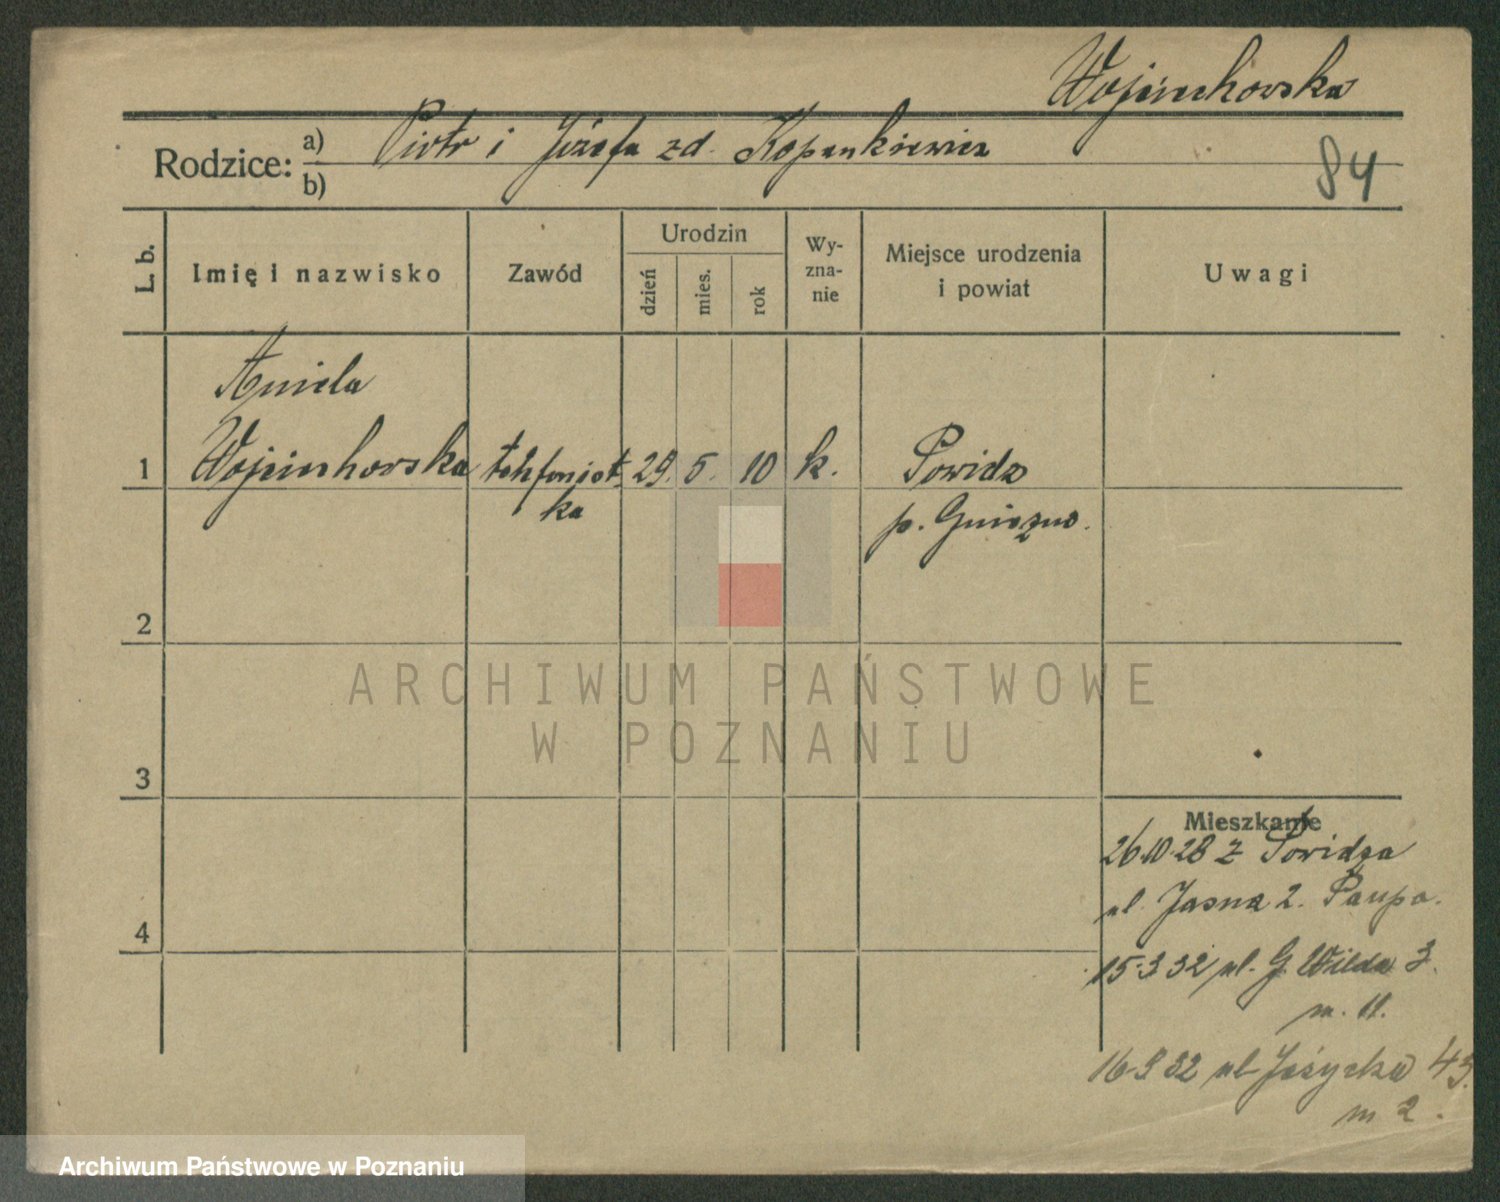 Wojciechowska
Rodzice: a) Piotr i Józefa zd. Kopankiewicz
b)
84
L. b.
Imię i nazwisko
Zawód
Urodzin
dzień
mies.
rok
Wy-
zna-
nie
Miejsce urodzenia
i powiat
Uwagi
Aniela
1 Wojciechowska telefonist 29. 5. 10 k. Powidz
ka p. Gniezno.
2
3
4
ARCHIWUM PAŃSTWOWE
W POZNANIU
Mieszkanie
26.10.28 z Powidza
ul. Jasna 2.
15.3 32 ul. G. Wilda 3.
m. 11.
16 3 32 ul 43.
m 2.
Archiwum Państwowe w Poznaniu